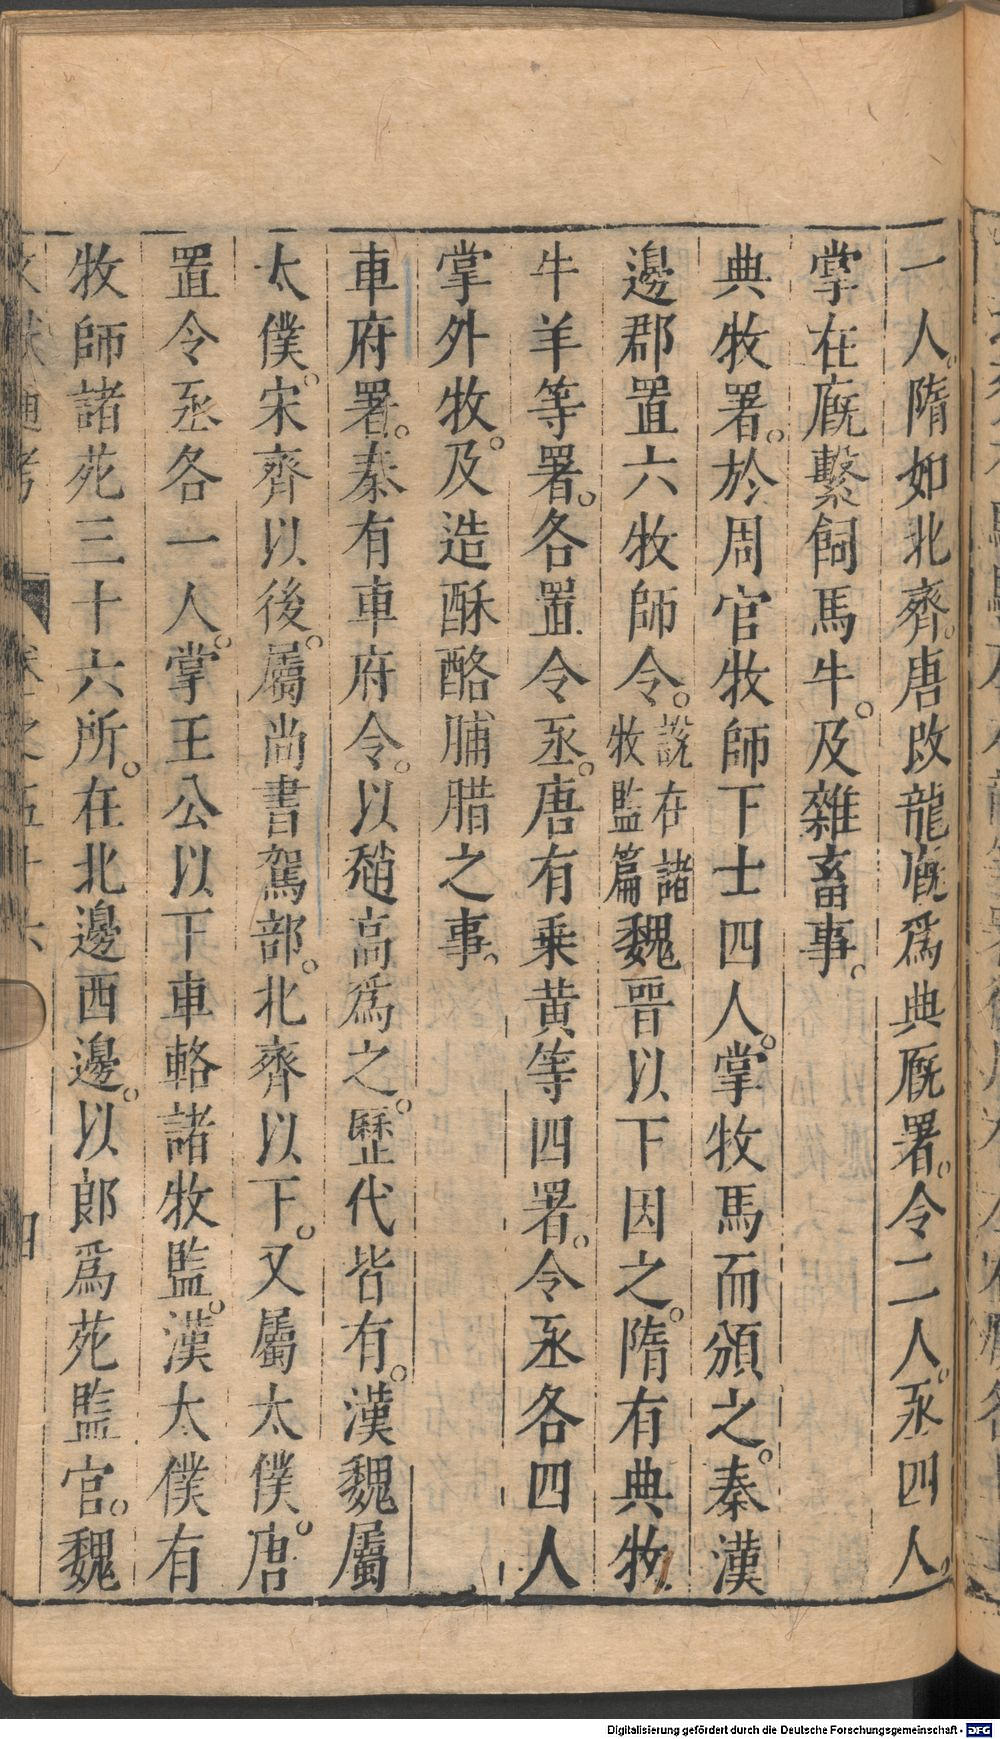 一人隋如北齊唐改龍廐爲典廐署令二人丞四人
掌在廐繫飼馬牛及雜畜事
典牧署於周官牧師下士四人掌牧馬而頒之秦漢
邊郡置六牧師令說在諸牧監篇魏晉以下因之隋有典牧
牛羊等署各置令丞唐有乗黄等四署令丞各四人
掌外牧及造酥酪脯腊之事
車府署秦有車府令以趙高爲之歷代皆有漢魏屬
太僕宋齊以後屬尚書駕部北齊以下又屬太僕唐
置令丞各一人掌王公以下車輅諸牧監漢太僕有
牧師諸苑三十六所在北邊西邊以郎爲苑監官魏
卷之五十六
四
Digitalisierung gefördert durch die Deutsche Forschungsgemeinschaft - DFG